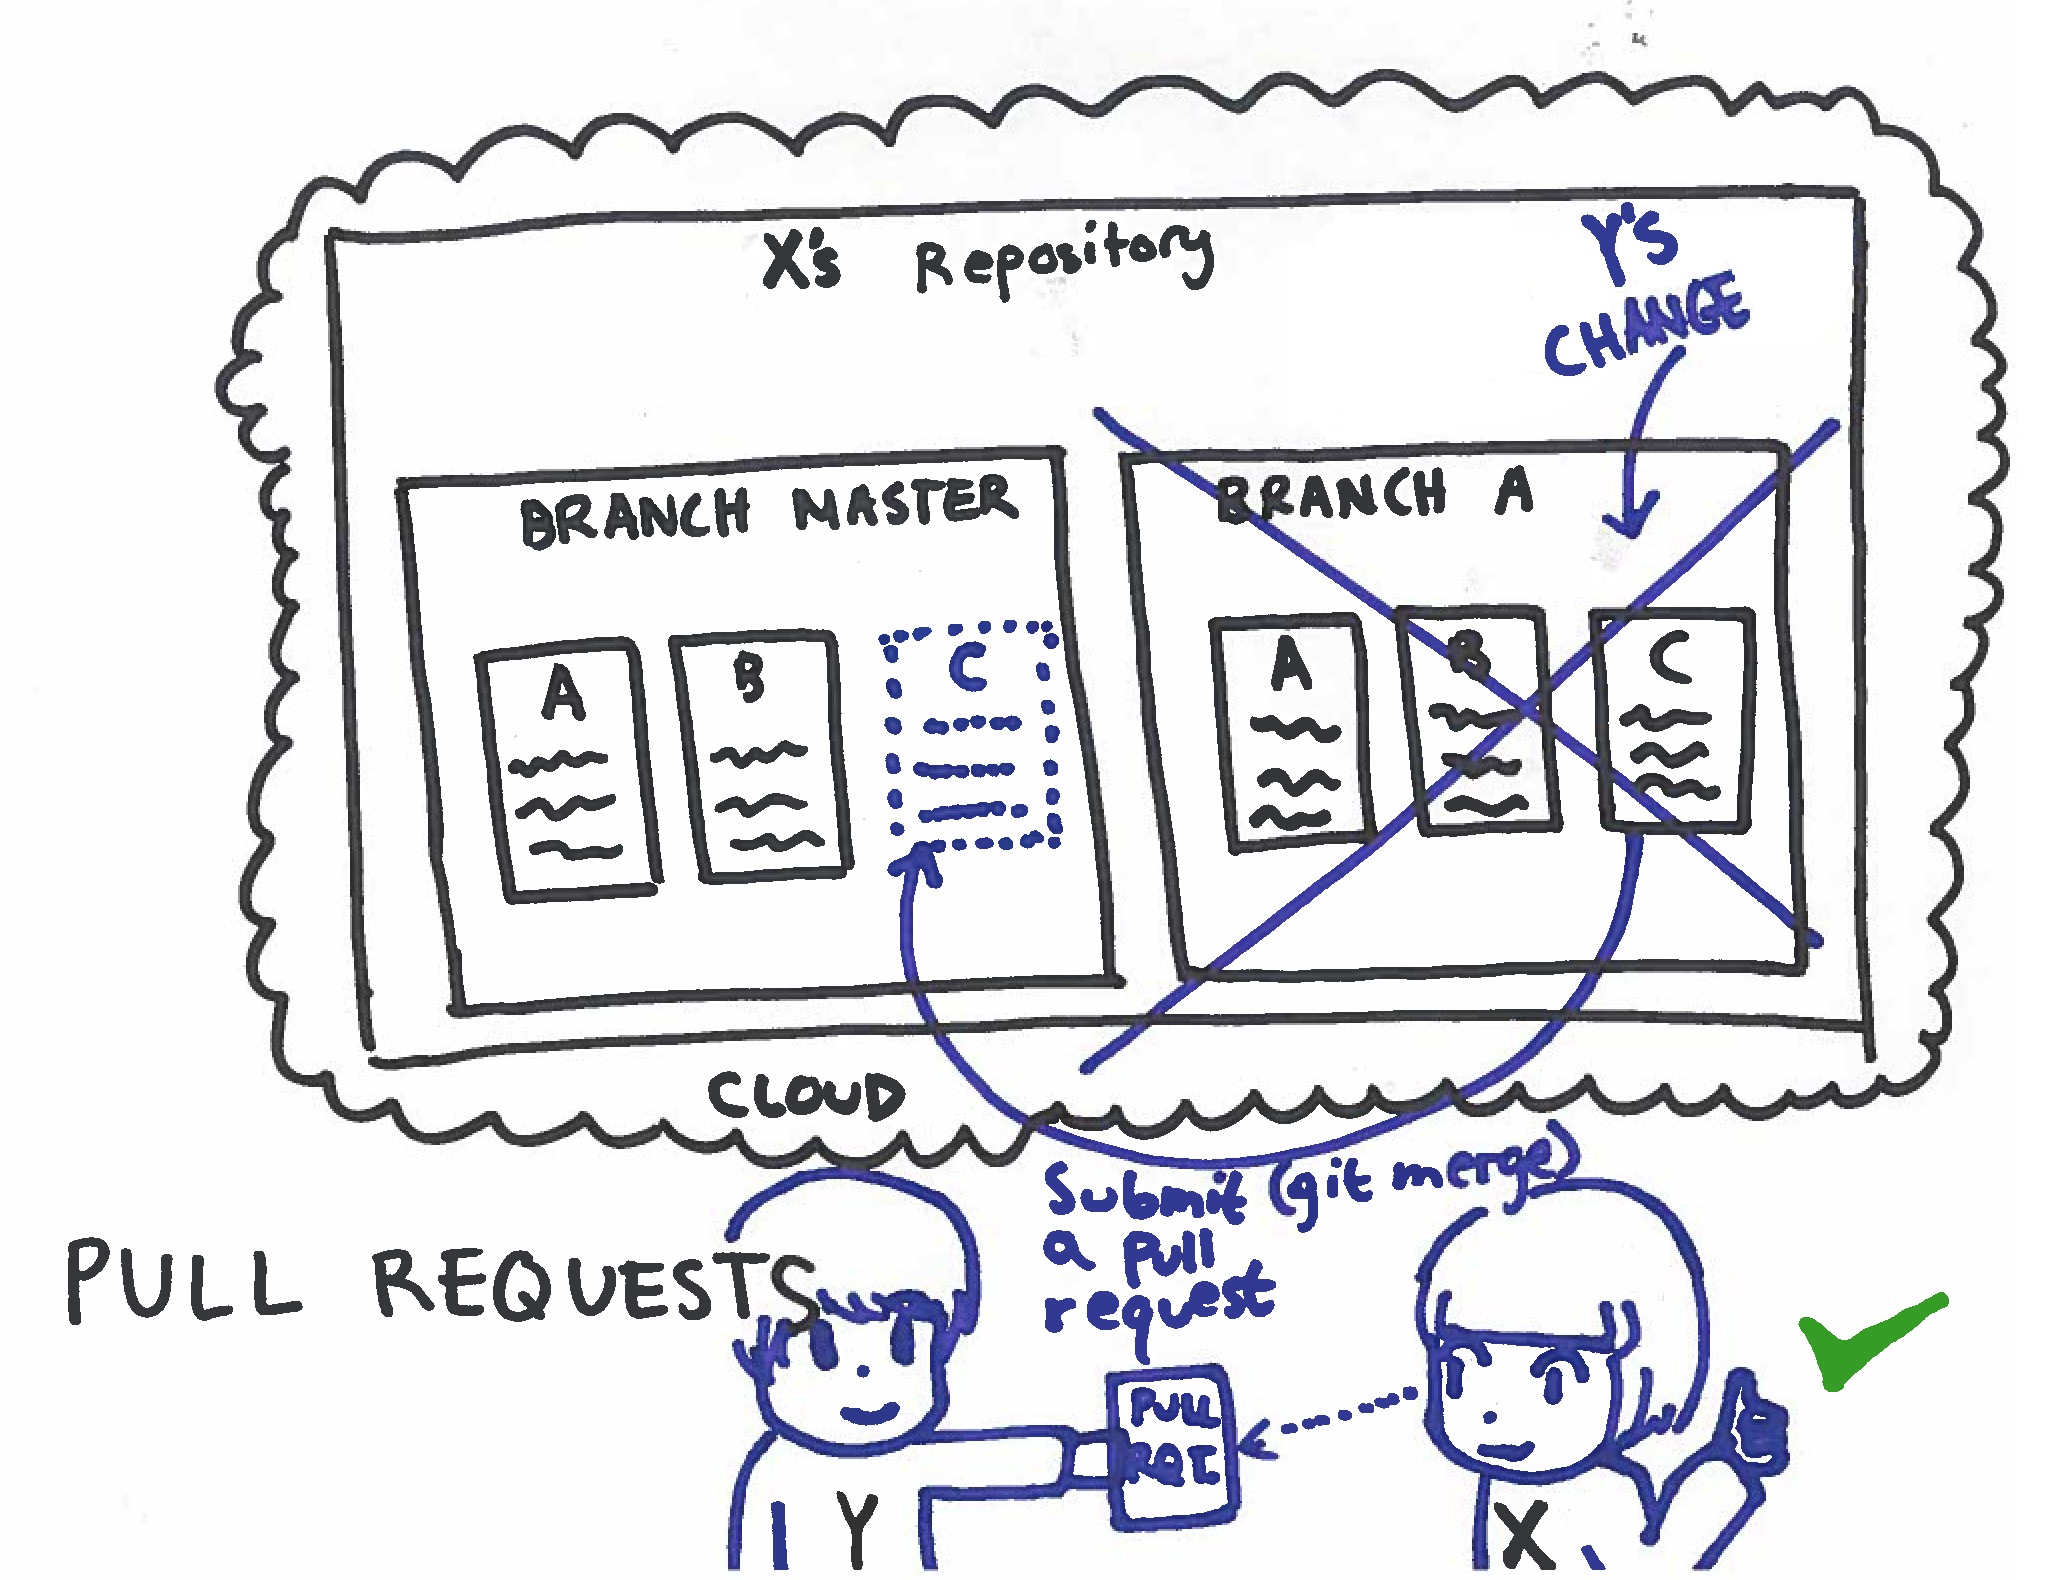 X's Repository
Y'S
CHANGE
BRANCH MASTER
BRANCH A
A
B
C
A
B
C
CLOUD
Submit (git merge)
a pull
request
PULL REQUESTS
PULL
RQT
Y
X